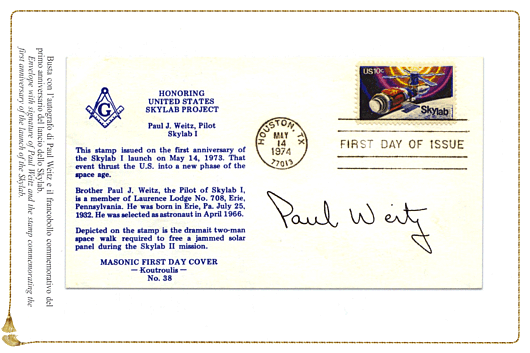 Busta con l'autografo di Paul Weitz e il francobollo commemorativo del
primo anniversario del lancio dello Skylab.
Envelope with signature of Paul Weitz and the stamp commemorating the
first anniversary of the launch of the Skylab.
G
HONORING
UNITED STATES
SKYLAB PROJECT
Paul J. Weitz, Pilot
Skylab I
This stamp issued on the first anniversary of
the Skylab I launch on May 14, 1973. That
event thrust the U.S. into a new phase of the
space age.
Brother Paul J. Weitz, the Pilot of Skylab I,
is a member of Laurence Lodge No. 708, Erie,
Pennsylvania. He was born in Erie, Pa. July 25,
1932. He was selected as astronaut in April 1966.
Depicted on the stamp is the dramait two-man
space walk required to free a jammed solar
panel during the Skylab II mission.
MASONIC FIRST DAY COVER
— Koutroulis —
No. 38
HOUSTON, TX
MAY
14
1974
77013
US10c
Skylab
FIRST DAY OF ISSUE
Paul Weitz